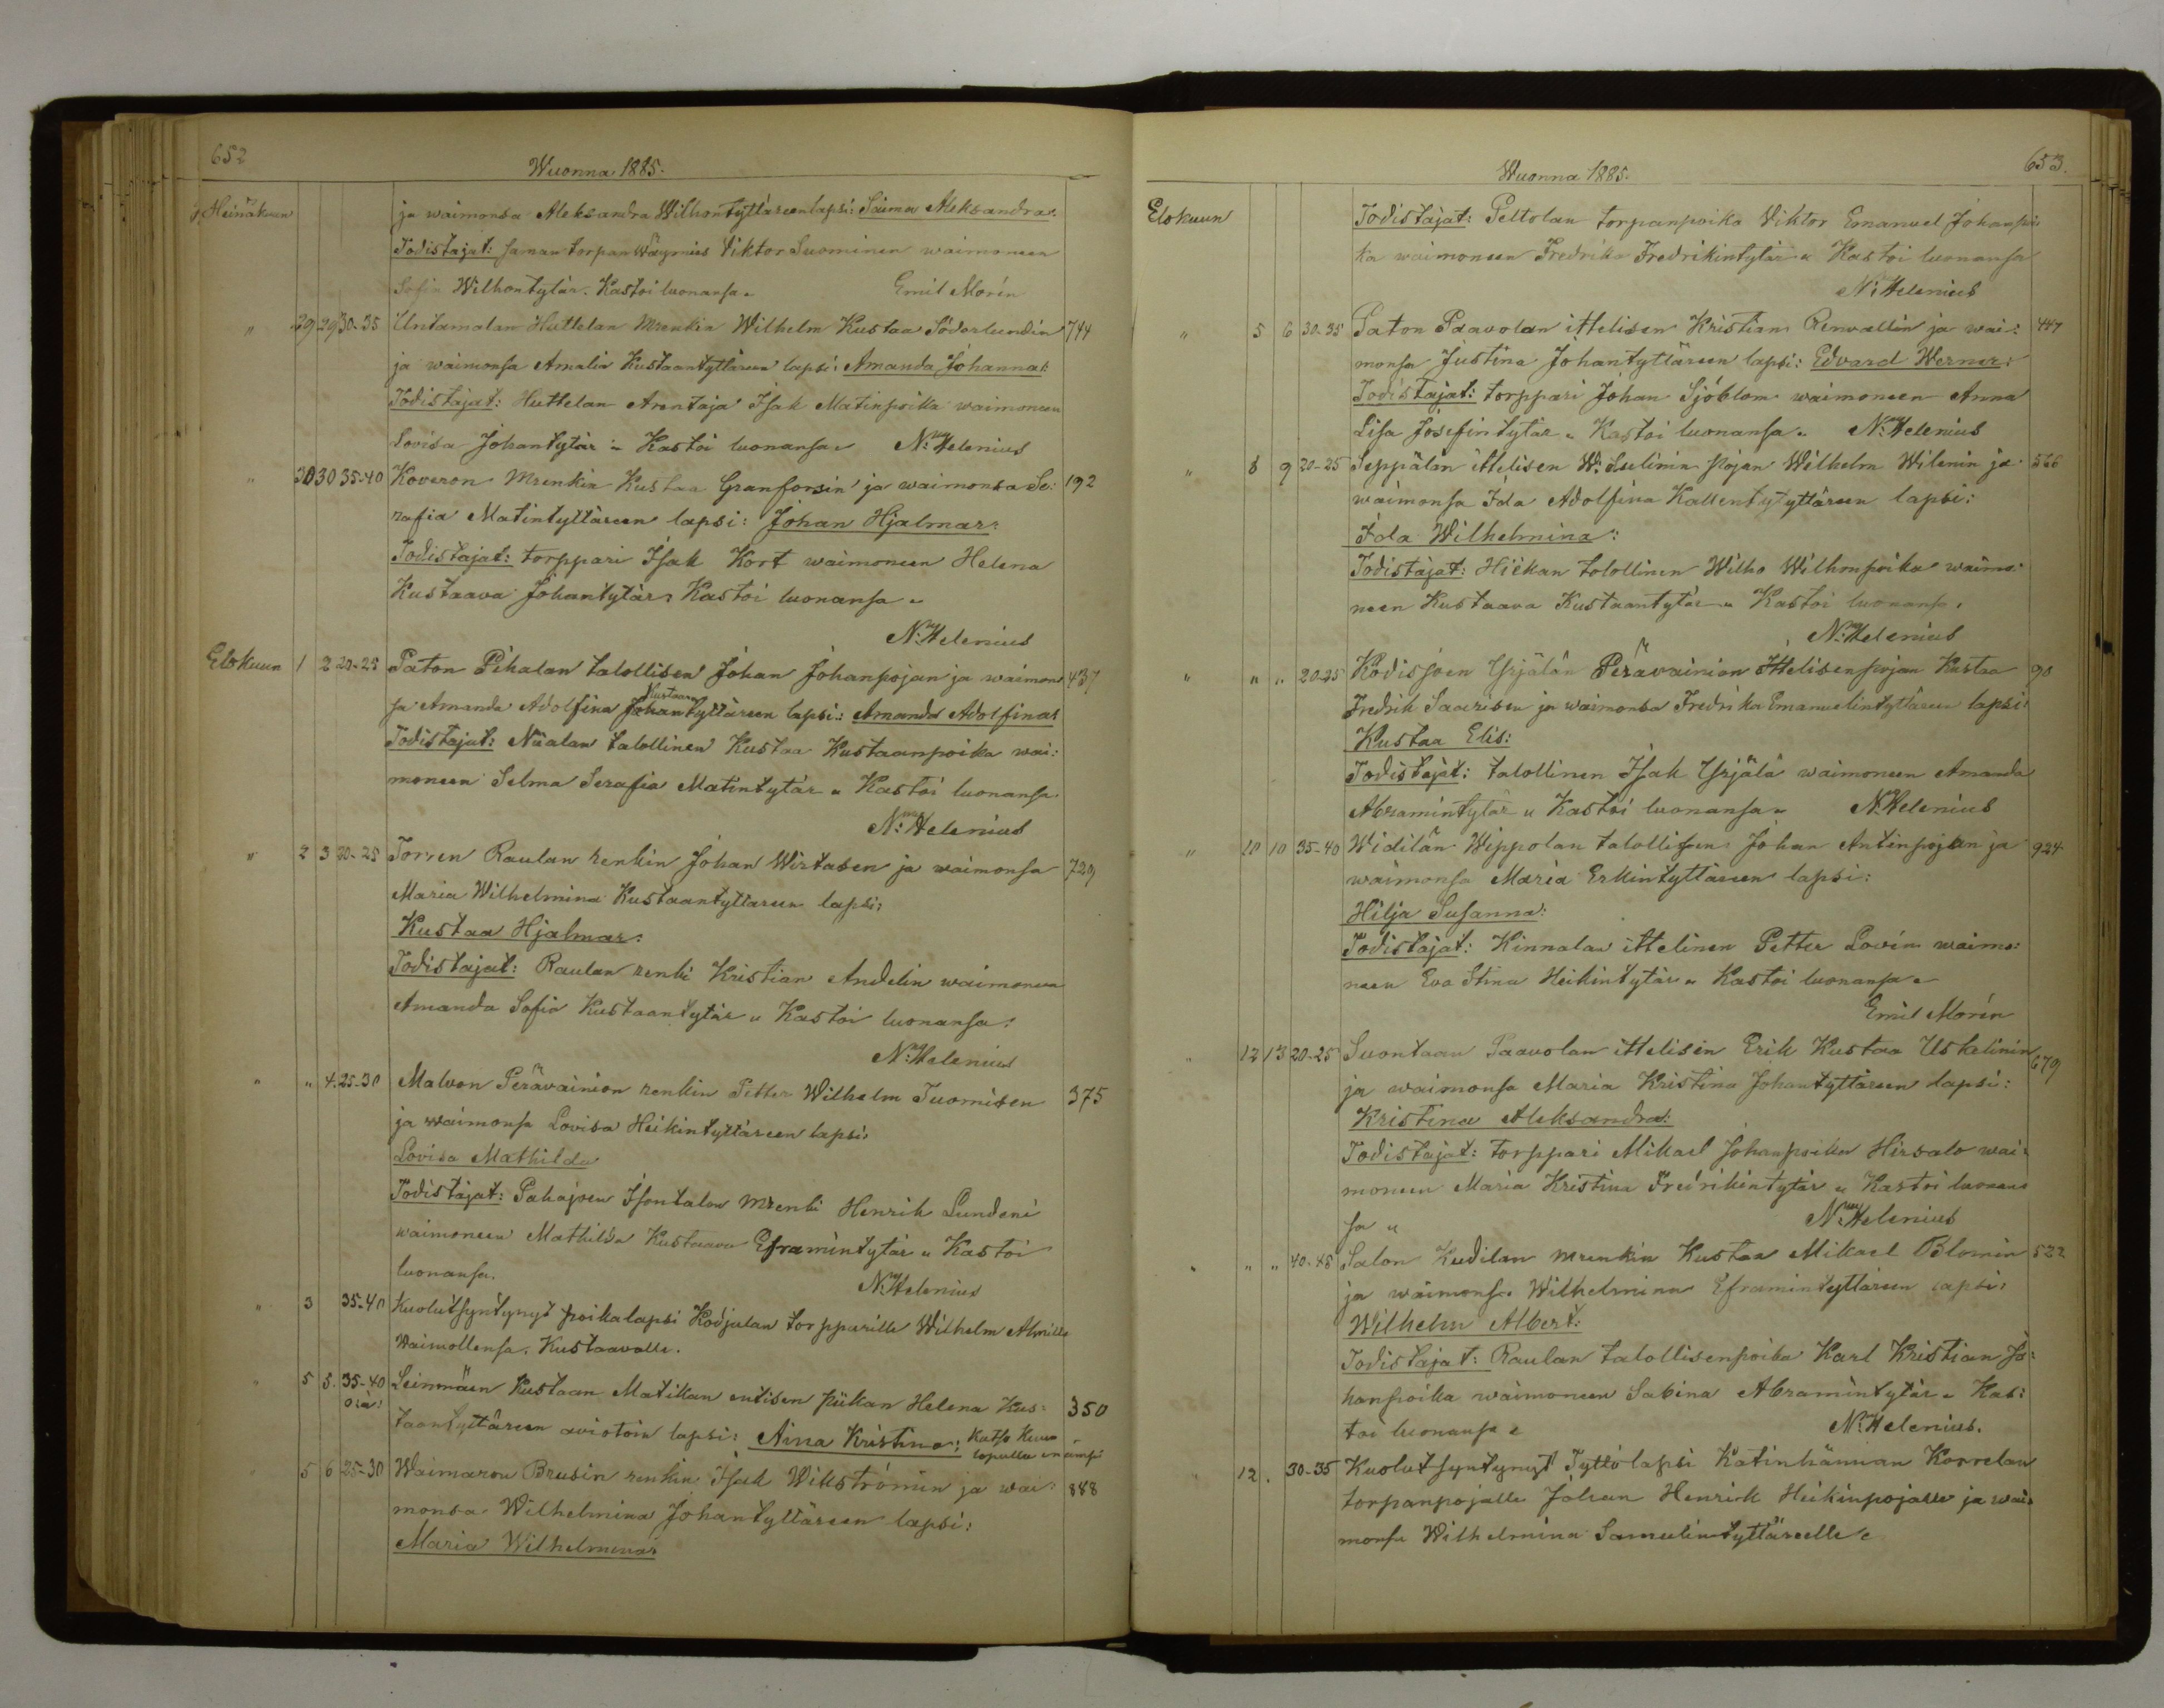 652
Wuonna 1885.
Heinäkuun ja waimonsa Aleksandra Wilhontyttäreen lapsi: Saima Aleksandra:
Todistajat: saman torpan Viktor Suominen waimoneen
Sofia Wilhontytär. Kastoi luonansa. Emil Morén
" 29 29 30-35 Untamalan Huttelan Mrenkin Wilhelm Kustaa Söderlundin 744
ja waimonsa Amalia Kustaantyttäreen lapsi: Amanda Johanna:
Todistajat: Huttelan Arentaja Isak Matinpoika waimoneen
Lovisa Johantytär " Kastoi luonansa " N: Helenius
" 30 30 35-40 Koveron Mrenkin Kustaa Granforsin ja waimonsa Se: 192
rafia Matintyttäreen lapsi: Johan Hjalmar:
Todistajat: torppari Isak Kort waimoneen Helena
Kustaava Johantytär " Kastoi luonansa "
N: Helenius
Elokuun 1 2 20-25 Paton Pikalan talollisen Johan Johanpojan ja waimon 437
sa Amanda Adolfina Johantyttäreen Kustaan lapsi: Amanda Adolfina:
Todistajat: Niialan talollinen Kustaa Kustaanpoika wai:
moneen Selma Serafia Matintytär " Kastoi luonansa.
N: Helenius
" 2 3 20-25 Torren Raulan renkin Johan Wirtasen ja waimonsa 729
Maria Wilhelmina Kustaantyttäreen lapsi:
Kustaa Hjalmar:
Todistajat: Raulan renki Kristian Andelin waimoneen
Amanda Sofia Kustaantytär " Kastoi luonansa:
N: Helenius
" " 4. 25-30 Malvon Perävainion renkin Petter Wilhelm Tuomisen 375
ja waimonsa Lovisa Heikintyttäreen lapsi:
Lovisa Mathilda
Todistajat: Pahajoen Isontalon Mrenki Henrik Lundeni
waimoneen Mathilda Kustaava Eframintytär " Kastoi
luonansa. N: Helenius
" 3 35-40 Kuolutsyntynyt poikalapsi Kodjalan torpparille Wilhelm
Waimollensa. Kustaavalle.
" 5 5. 35-40 Leinmäen Kustaan Matikan entisen piikan Helena Kus: 350
taantyttäreen aviotoin lapsi: Aina Kristina: Katso Kuun
lopulla
5 6 25-30 Waimaron Brusin renkin Isak Wikströmin ja wai: 888
monsa Wilhelmina Johantyttäreen lapsi:
Maria Wilhelmina:
653.
Wuonna 1885.
Elokuun Todistajat: Peltolan torpanpoika Viktor Emanuel Johanpoi
ka waimoneen Fredrika Fredrikintytär " Kastoi luonansa
N: Helenius
" 5 6 30-35 Paton Paavolan ittelisen Kristian Renvallin ja wai: 447
monsa Justina Johantyttäreen lapsi: Edvard Werner:
Todistajat: torppari Johan Sjöblom waimoneen Anna
Lisa Josefintytär " Kastoi luonansa " N: Helenius
" 8 9 20-25 Seppälän ittelisen W: pojan Wilhelm Wilenin ja 566
waimonsa Ida Adolfina Kallentytyttäreen lapsi:
Ida Wilhelmina:
Todistajat: Hiekan talollinen Wilho Wilhonpoika waimo:
neen Kustaava Kustaantytär " Kastoi luonansa.
N: Helenius
" " " 20-25 Kodisjoen Yrjälän Perävainion ittelisenpojan Kustaa 90
Fredrik Saarisen ja waimonsa Fredrika Emanuelintyttäreen lapsi:
Kustaa Elis:
Todistajat: talollinen Isak Yrjälä waimoneen Amanda
Abramintytär " Kastoi luonansa " N: Helenius
" 10 10 35-40 Widilän Wippolan talollisen Johan Antinpojan ja 924
waimonsa Maria Erkintyttäreen lapsi:
Hilja Susanna:
Todistajat: Kinnalan ittelinen Petter Lovin waimo:
neen Eva Stina Heikintytär " Kastoi luonansa "
Emil Morén
" 12 13 20-25 Suontaan Paavolan ittelisen Erik Kustaa Uskalinin 679
ja waimonsa Maria Kristina Johantyttäreen lapsi:
Kristina Aleksandra:
Todistajat: torppari Mikael Johanpoika Hirsalo wai:
moneen Maria Kristina Fredrikintytär " Kastoi luonan
sa " N: Helenius
" " " 40-45 Salon Kudilan Mrenkin Kustaa Mikael Blomin 522
ja waimonsa Wilhelmina Eframintyttäreen lapsi:
Wilhelm Albert:
Todistajat: Raulan talollisenpoika Karl Kristian Jo:
hanpoika waimoneen Sabina Abramintytär " Kas:
toi luonansa " N: Helenius.
" 12 . 30-35 Kuolutsyntynyt Tyttölapsi Katinhännan Korrelan
torpanpojalle Johan Henrik Heikinpojalle ja wai
monsa Wilhelmina Samuelintyttäreelle "